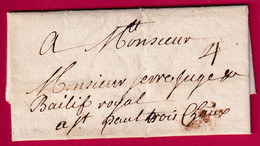 A Mons
Monsieur
4
Monsieur juge
Bailif royal
a st paul trois Chaux